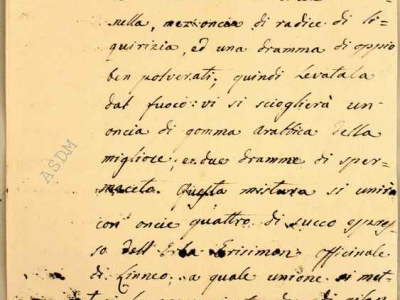 nella, mezz'oncia di radice di li-
quirizia, ed una dramma di oppio
ben polverati, quindi levatala
dal fuoco: vi si scioglierà un
oncia di gomma Arabbica della
migliore, e due dramme di sper-
maceta. Questa mistura si unirà
con oncie quattro di succo espres-
so dell'Erba Erisimon officinale
di Linneo, a quale unione si met-
ASDM